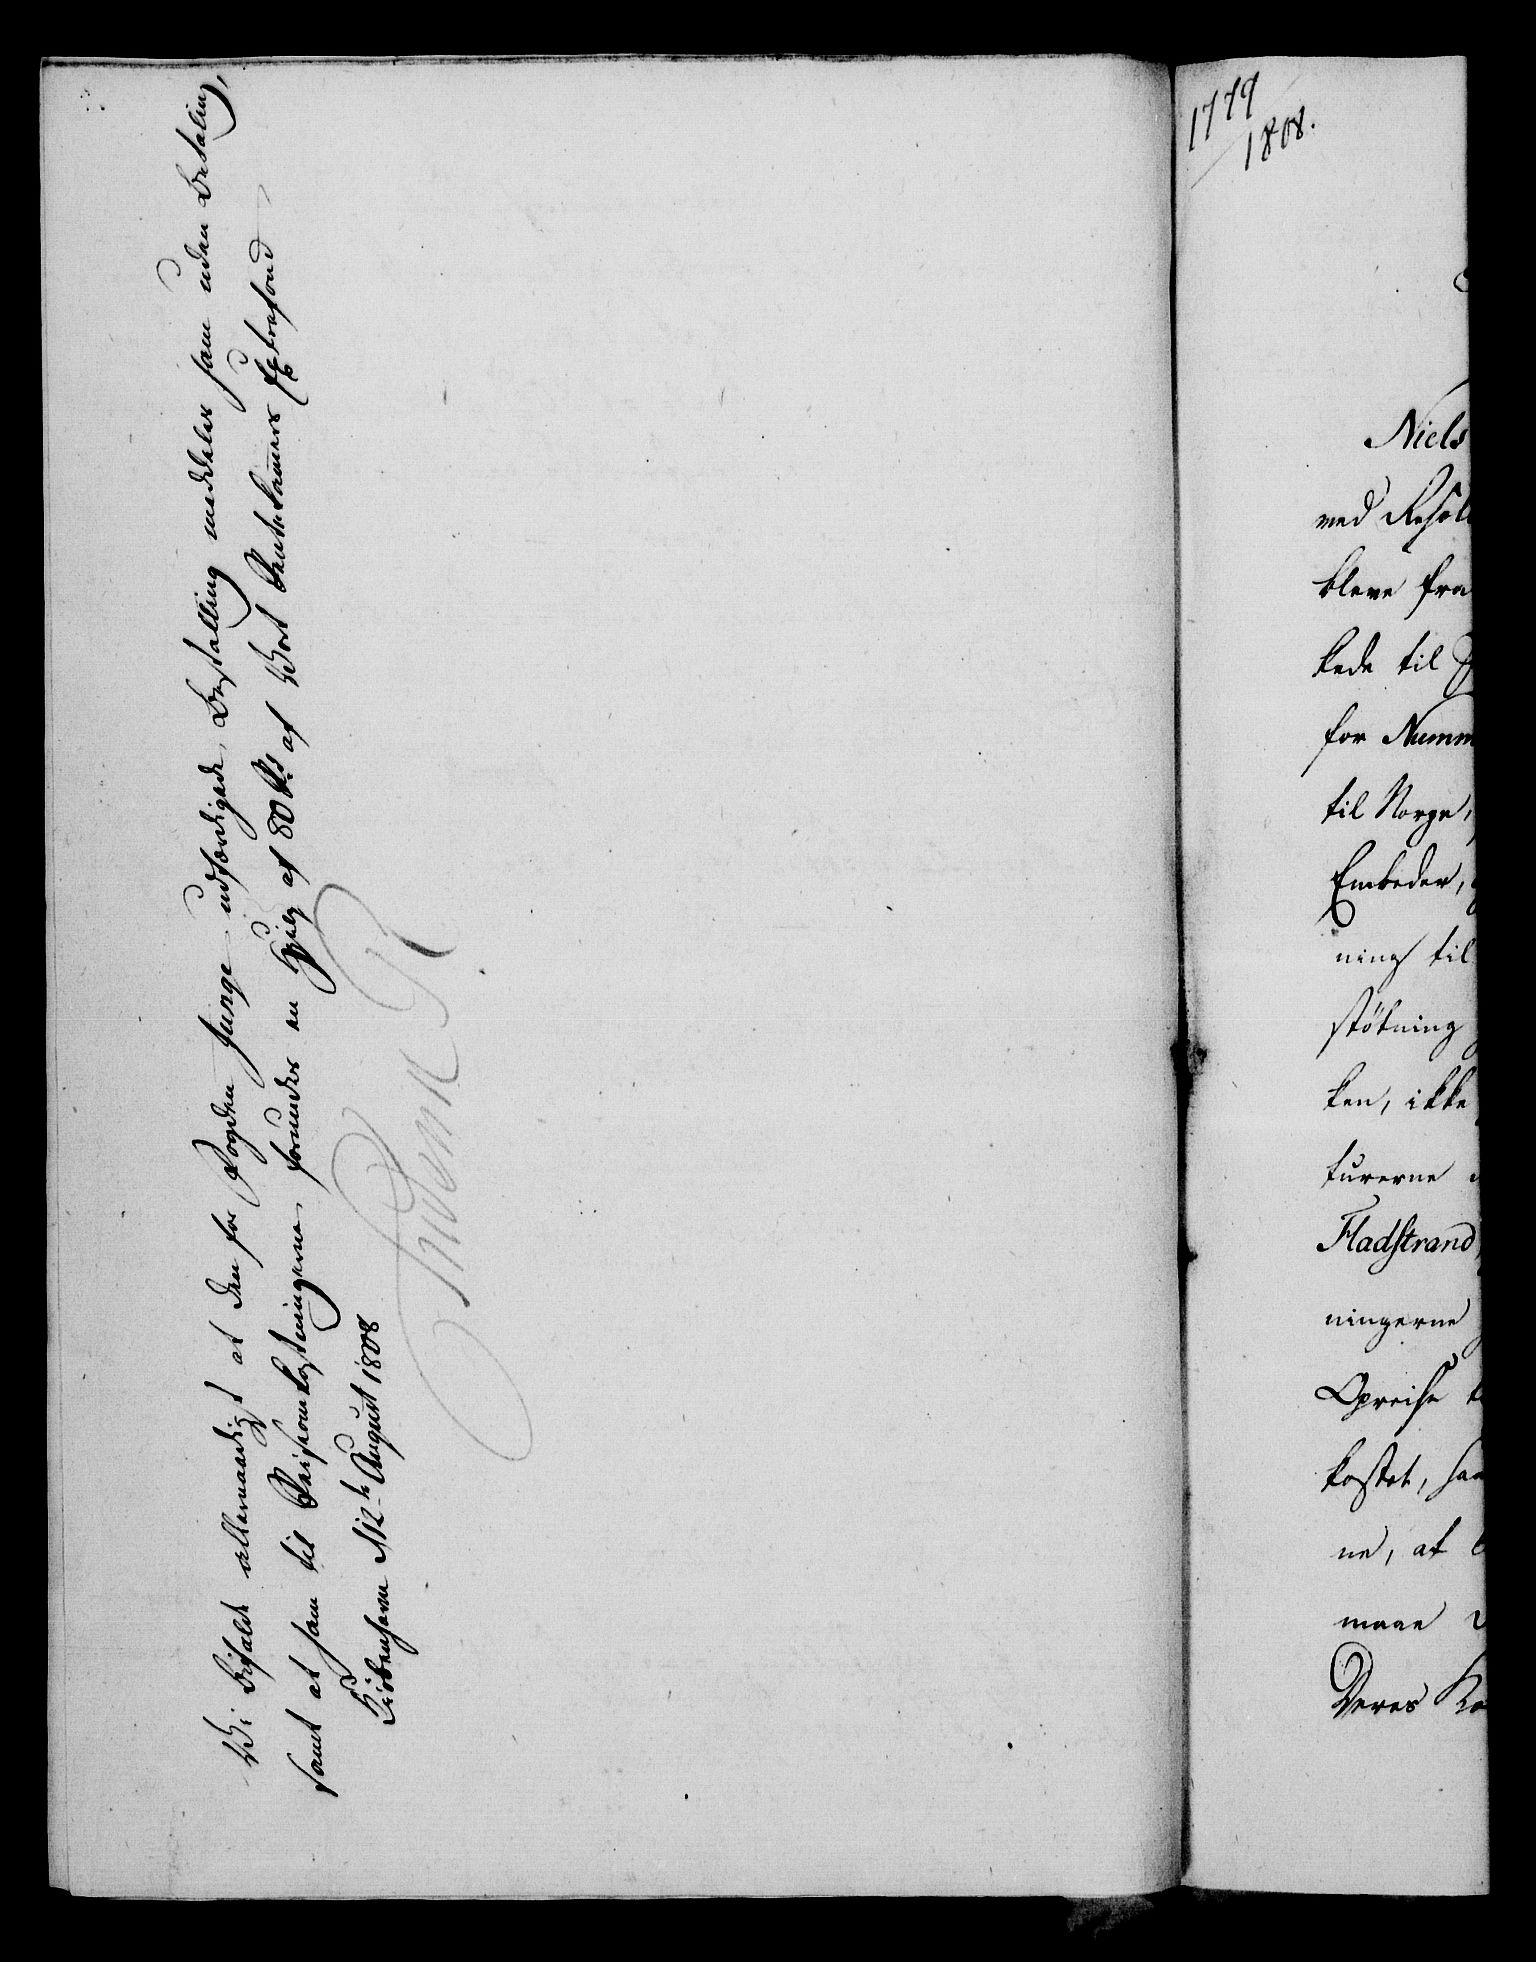 Vi bifalde allernaadigst at den for Fogden Junge udfærdigede Bestalling meddeles ham uden Betaling,
samt at ham til Reiseomkostningerne forundes en Hielp af 80 Rd af Vort Rentekamers Extrafond
Kiøbenhavn d 12te August 1808
Friderik R
1779
1808.
Niels
med Resol
bleve fra
kede til
for Numm
til Norge,
Embeder,
ning til
støtning
ken, ikke
turerne
Fladstrand
ningerne
Opreise
kostet, har
ne, at
maae
Deres Ko